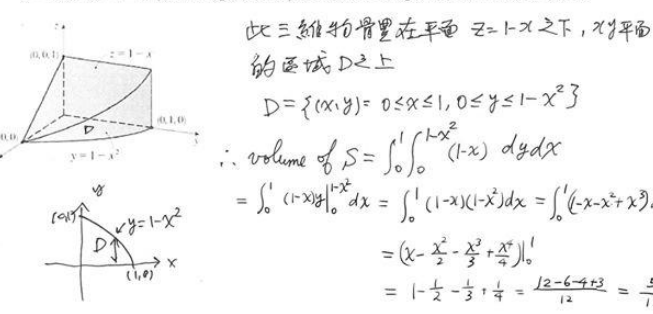 z
(0, 0, 1)
z = 1 - x
D
(0, 1, 0)
y = 1 - x²
此三維物體置在平面 z=1-x 之下, xy平面
的區域D之上
D={(x,y)= 0≤x≤1, 0≤y≤1-x²}
∴ volume of S = ∫₀¹∫₀^(1-x²) (1-x) dydx
= ∫₀¹ (1-x)y|₀^(1-x²) dx = ∫₀¹ (1-x)(1-x²)dx = ∫₀¹(1-x-x²+x³)
= (x - x²/2 - x³/3 + x⁴/4)|₀¹
= 1 - 1/2 - 1/3 + 1/4 = (12-6-4+3)/12 = 5
y
(0,1)
y=1-x²
D
x
(1,0)